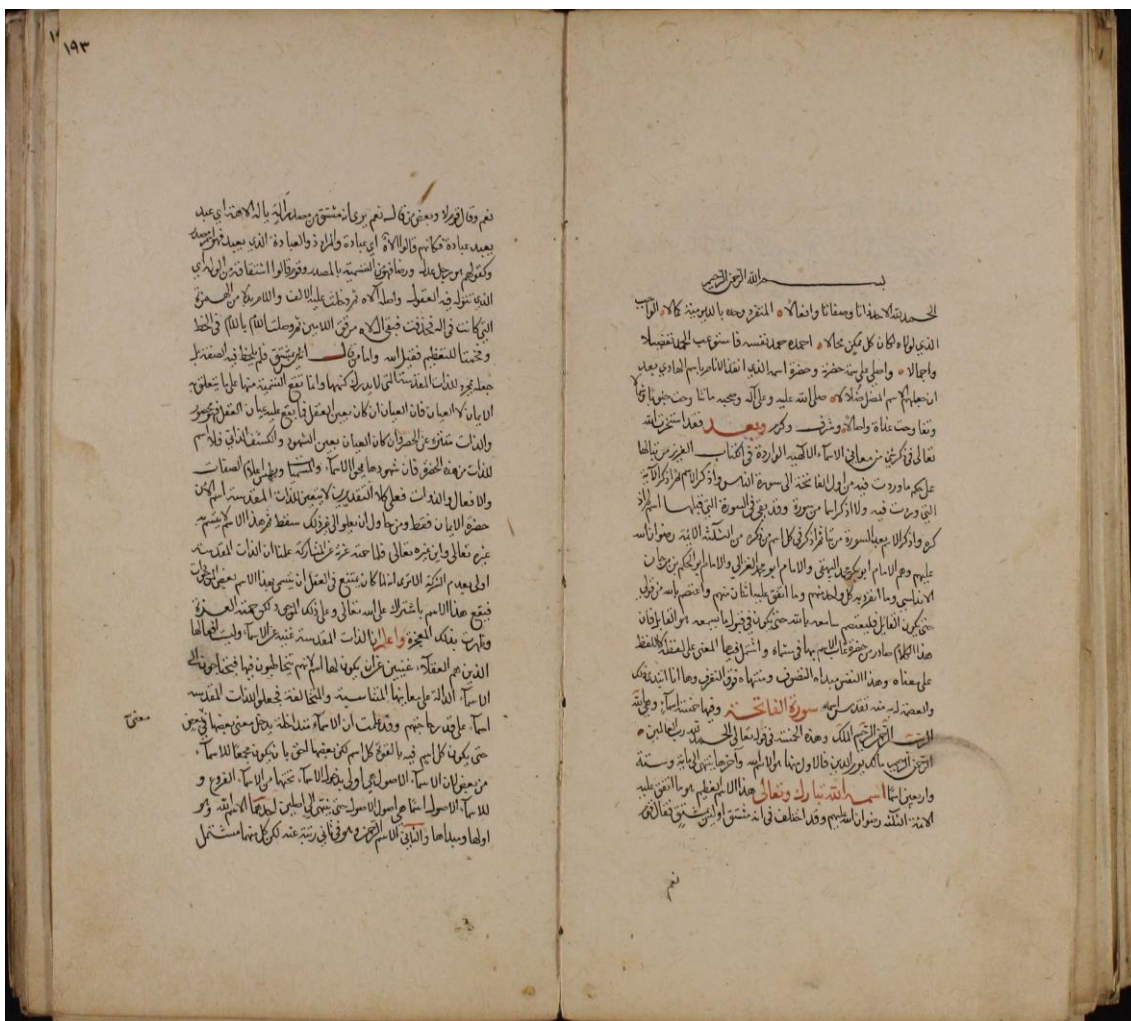 بسم الله الرحمن الرحيم
الحمد لله الاحد ذاتا وصفاتا وافعالا المتفرد وحده بالديمومية كمالا الواجب
الذي لولاه لكان كل ممكن محالا احمده حمد نفسه فاستوعب الحمد تفضيلا
واجمالا واصلي على حضرة وحضرة اسم الذي انقذ الناس باسم الهادي بعد
ان جعلهم الاسم المضل ضلالا صلى الله عليه وعلى آله وصحبه
وشرف وكرم وبعد فقد استخرت الله
تعالى في ذكر شيء من معاني الاسماء الالهية الواردة في الكتاب العزيز
على حكم ما وردت فيه من اول الفاتحة الى سورة الناس واذكر الاسم ثم اذكر الآية
التي وردت فيه ولا اذكر اسما من سورة وقد بقي في السورة التي قبلها اسم لم اذ
كره واذكر الاسم بعد السورة مرتبا ثم اذكر في كل اسم من ذكره من الثلثة الائمة رضوان الله
عليهم وهم الامام ابو بكر محمد البيهقي والامام ابو حامد الغزالي والامام ابو الحكم بن برجان
الاندلسي وما انفرد به كل واحد منهم وما اتفق عليه اثنان منهم واعتصم بالله من قولي
حتى يكون القايل فليعتصم سامعه بالله حتى يكون في قبول ما يسمعه هو القابل فان
هذا الكلام صادر من حضرة غاب الاسم بها في مسماه واشتمل فيها المعنى على العقل كاللفظ
على معناه وهذا النفس مبداه التصوف ومنتهاه فوق التعرف وها انا ابتدئ ذلك
والعصمة لديه منه تقدس اسمه سورة الفاتحة وفيها خمسة اسماء وهي الله
الرب الرحمن الرحيم الملك وهذه الخمسة في قوله تعالى الحمد لله رب العالمين
الرحمن الرحيم مالك يوم الدين فالاول منها هو الاسم الله وآخرها ينتهي الى ماية وستة
واربعين اسما اسمه الله تبارك وتعالى هذا الاسم العظيم هو مما اتفق عليه
الائمة الثلثة رضوان الله عليهم وقد اختلف في انه مشتق او ليس مشتق فقال قوم
نعم
١٩٣
نعم وقال قوم لا وبعض من قال نعم يرى انه مشتق من مصدر اله ياله الاهة اي عبد
يعبد عبادة فكانهم قالوا الاه اي عبادة والمراد ذو العبادة الذي يعبد فهو مصدر
وكقولهم هو رجل عدل ورضا فهو من التسمية بالمصدر وقوم قالوا اشتقاقه من الوله اي
الذي تتوله فيه العقول واصله الاه ثم دخلت عليه الالف واللام بدلا من الهمزة
التي كانت في اله فحذفت فبقي الاه مرقق اللامين ثم وصلت اللام باللام في الخط
وفخمتا للتعظيم فقيل الله واما من قال انه غير مشتق فلم يلحظ فيه الصفة بل
جعله مجردا للذات المقدسة التي لا يدرك كنهها وانما تقع التسمية منها على ما يتعلق به
الايمان لا العيان فان العيان ان كان بعين العقل فما يقع عليه عيان العقل فهو محصور
والذات منزه عن الحصر وان كان العيان بعين الشهود والكشف الذاتي فلا اسم
للذات من هذه الحضرة فان شهودها يمحو الاسماء والمسميا ويطمس اعلام الصفات
والافعال والذوات فعلى كلا التقديرين لا يتعين للذات المقدسة اسم الا من
حضرة الايمان فقط ومن حاول ان يعلو الى غير ذلك سقط ثم هذا الاسم لم يتسم به
غيره تعالى واين غيره تعالى فلما حمته غيرة عن المشاركة علمنا ان الذات المقدسة
اولى بعدم الشركة الا ترى انه لما كان يمتنع في العقل ان يتسمى بهذا الاسم بعض الموجودات
فيقع هذا الاسم باشتراك على الله تعالى وعلى ذلك الموجود لكن حمته العزة
وقامت بذلك المعجزة واعلم ان الذات المقدسة غنية عن الاسماء وليست افعالها
الذين هم العقلاء غنيين عن ان يكون لها اسم لانهم يتخاطبون فيها فيحتاجون الى
الاسماء الدالة على معانيها المتناسبة والمتخالفة فجعلوا للذات المقدسة
اسماء على قدر حاجتهم وقد علمت ان الاسماء متداخلة يدخل معنى بعضها في بعض
معنى
حتى يكون كل اسم فيه بالقوة كل اسم لكن بعضها احق بان يكون مجمعا للاسماء
من بعض لان الاسماء الاصول هي اولى بدخول الاسماء تحتها من الاسماء الفروع و
للاسماء الاصول اسما هي اصول الاصول حتى ينتهي الى اصلين احدهما الاسم الله وهو
اولها ومبداها والثاني الاسم الرحمن وهو في ثاني رتبة عنه لكن كل منهما مشتمل